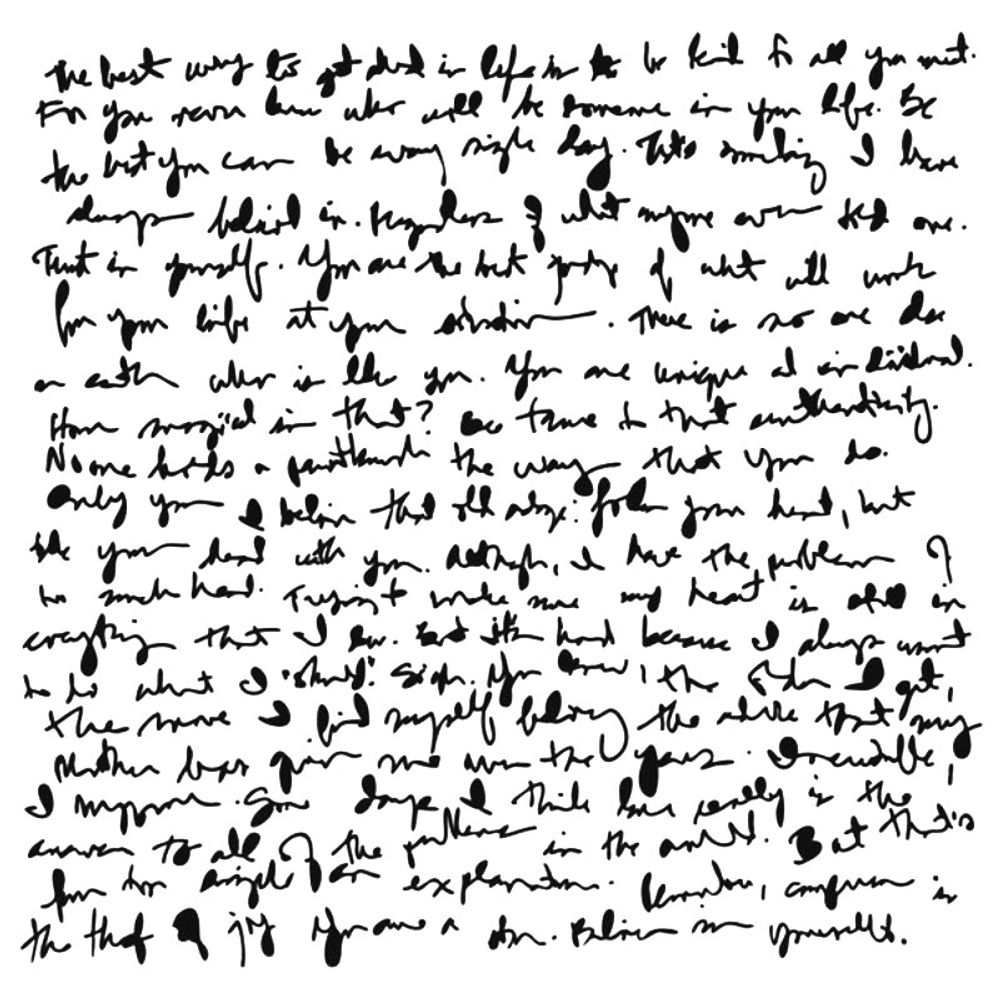 The best way to get ahead in life is to be kind to all you meet.
For you never know who will be someone in your life. Be
the best you can be every single day. That's something I have
always believed in. Regardless of what anyone ever told me.
Trust in yourself. You are the best judge of what will work
for your life at your . There is no one else
on earth who is like you. You are unique and individual.
How magical is that? Be true to that authenticity.
No one holds a paintbrush the way that you do.
Only you I believe that old adage: follow your heart, but
take your head with you. Although, I have the problem of
too much head. Trying to make sure my heart is also in
everything that I do. But it's hard because I always want
to do what I "should". Sigh. You know, the older I get,
the more I find myself following the advice that my
Mother has given me over the years. Inevitable,
I suppose. Some days I think love really is the
answer to all of the problems in the world. But that's
far too simple of an explanation. Remember, comparison is
the thief of joy You are a star. Believe in yourself.